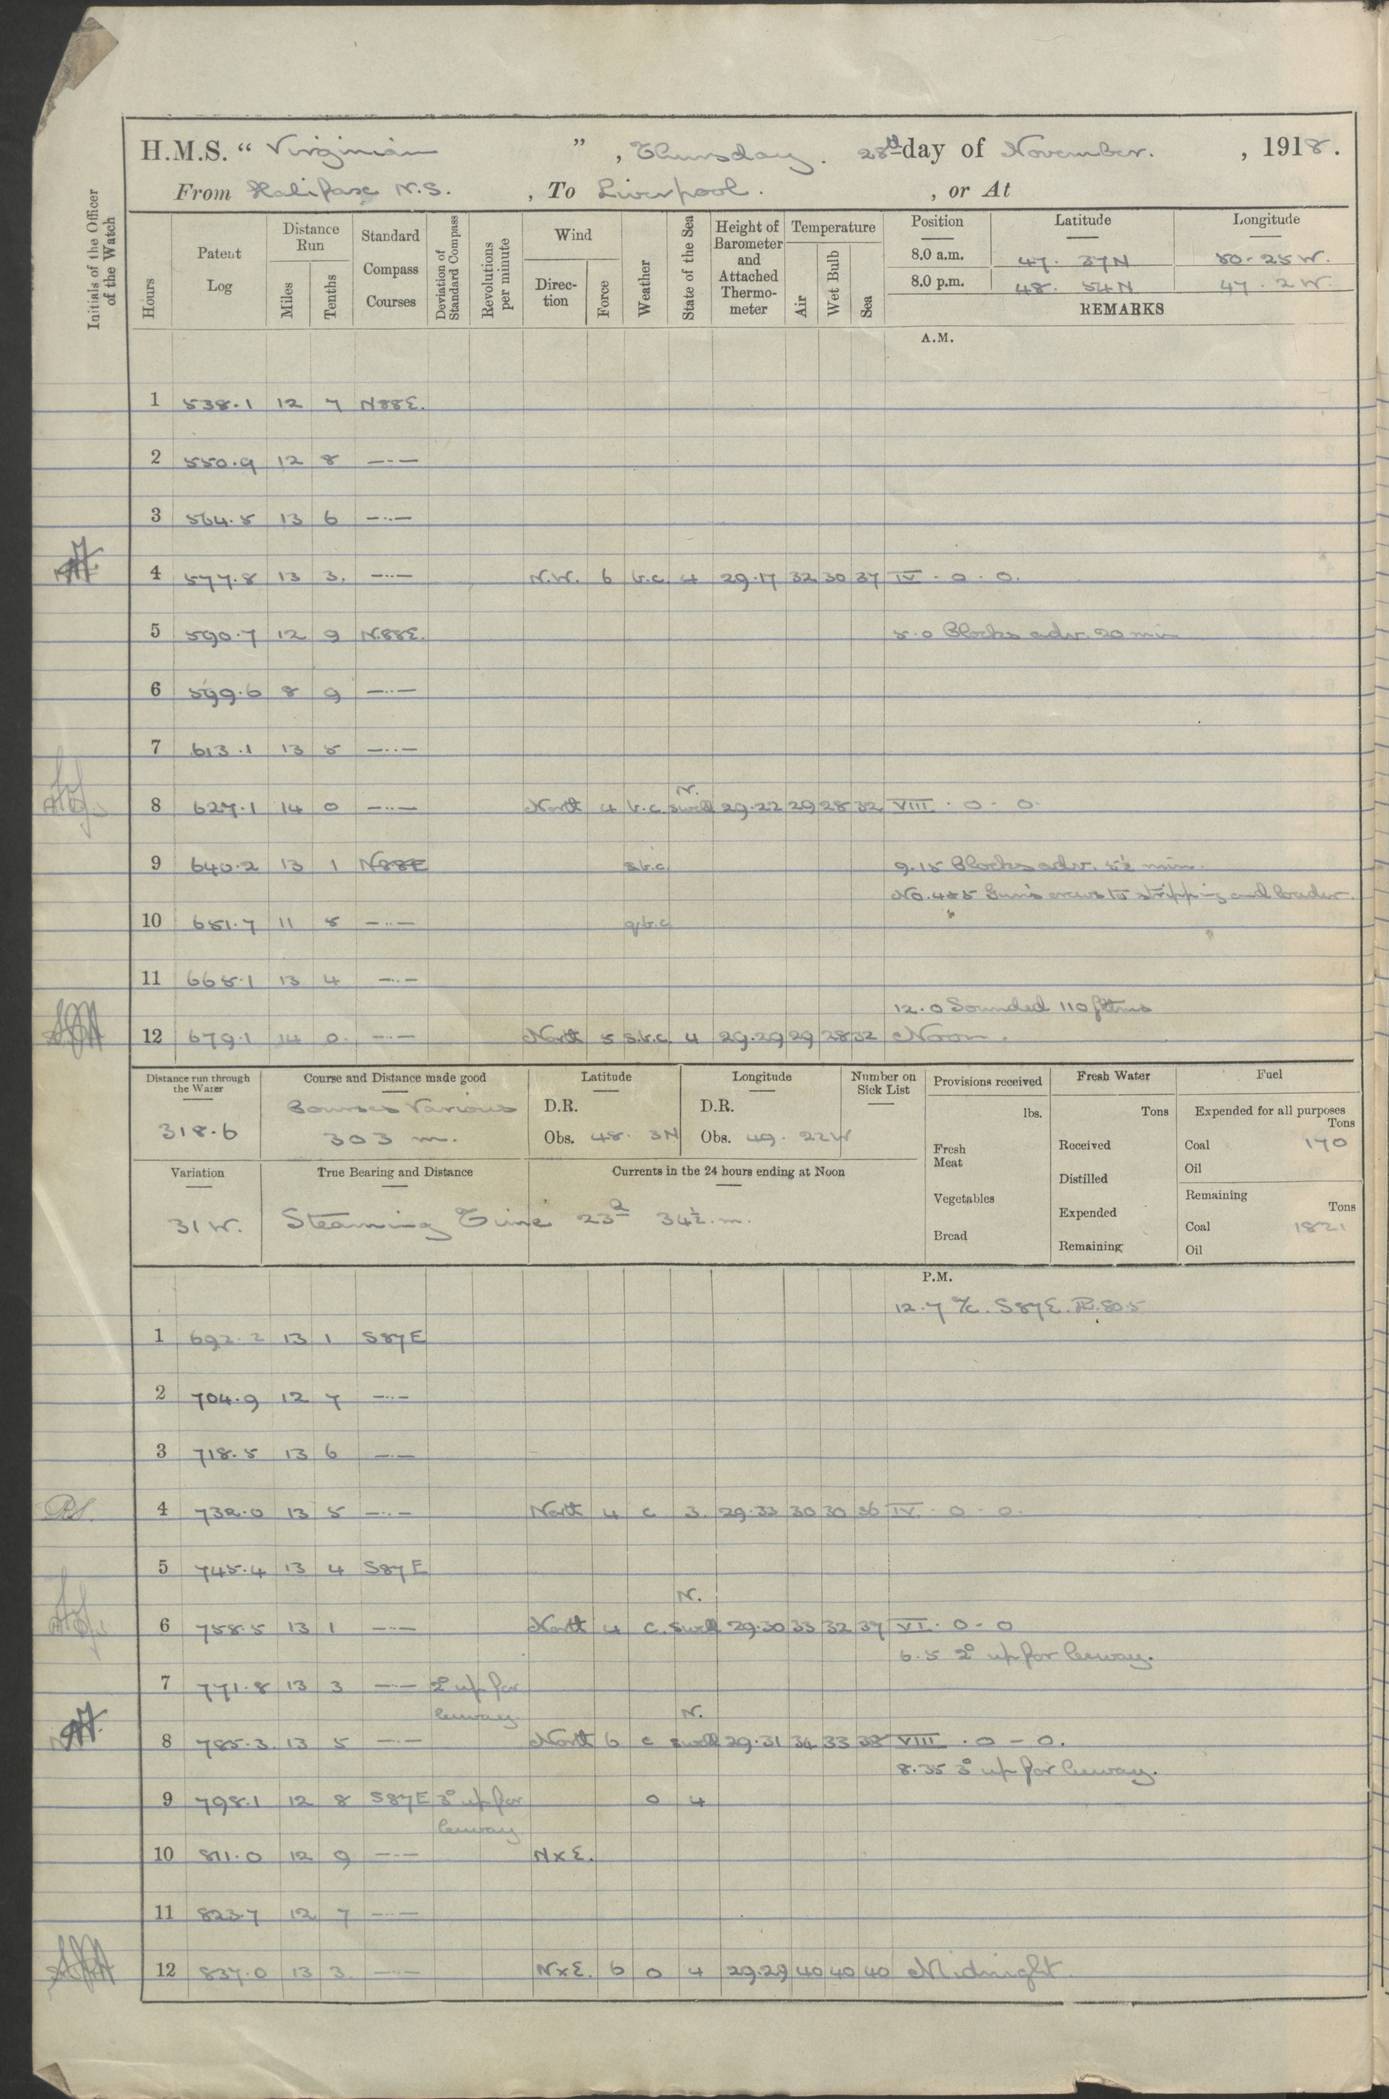 H.M.S. “ Virginian ” , Thursday. 28th day of November. , 1918.
From Halifax N.S. , To Liverpool. , or At
Initials of the Officer of the Watch
Hours Patent Log Distance Run Miles Tenths Standard Compass Courses Deviation of Standard Compass Revolutions per minute Wind Direction Force Weather State of the Sea Height of Barometer and Attached Thermometer Temperature Air Wet Bulb Sea Position Latitude Longitude
8.0 a.m. 47. 37N 50-25 W.
8.0 p.m. 48. 54N 47. 2 W.
REMARKS
A.M.
1 538.1 12 7 N88E.
2 550.9 12 8 —··—
3 564.5 13 6 —··—
4 577.8 13 3. —··— N.W. 6 b.c. 4 29.17 32 30 37 IV. 0. 0.
5 590.7 12 9 N88E. 5.0 Clocks adv. 20 min
6 599.6 8 9 —··—
7 613.1 13 5 —··—
N.
8 627.1 14 0 —··— North 4 b.c. Swell 29.22 29 28 32 VIII. 0. 0.
9 640.2 13 1 N88E s.b.c. 9.15 Clocks adv. 5½ min.
No. 4&5 Gun's crews to stripping and loader.
10 651.7 11 5 —··— q.b.c
11 665.1 13 4 —··—
12.0 Sounded 110 fthms
12 679.1 14 0. —··— North 5 s.b.c. 4 29.29 29 28 32 Noon.
Distance run through the Water Course and Distance made good Latitude Longitude Number on Sick List Provisions received Fresh Water Fuel
318.6 Courses Various D.R. D.R. lbs. Tons Expended for all purposes Tons
303 m. Obs. 48. 3N Obs. 49. 22W Fresh Meat Received Coal 170
Oil
Variation True Bearing and Distance Currents in the 24 hours ending at Noon Vegetables Distilled Remaining Tons
31 W. Steaming Time 23h 34½.m. Bread Expended Coal 1821
Remaining Oil
P.M.
12.7 A/c. S87E. R. 80.5
1 692.2 13 1 S87E
2 704.9 12 7 —··—
3 718.5 13 6 —··—
4 732.0 13 5 —··— North 4 c 3. 29.33 30 30 36 IV. 0 - 0.
5 745.4 13 4 S87E
N.
6 758.5 13 1 —··— North 4 c. Swell 29.30 33 32 37 VI. 0 - 0
6.5 2° up for leeway.
7 771.8 13 3 —··— 2° up for leeway
N.
8 785.3. 13 5 —··— North 6 c swell 29.31 34 33 38 VIII. 0 - 0.
8.35 3° up for leeway.
9 798.1 12 8 S87E 3° up for leeway 0 4
10 811.0 12 9 —··— NxE.
11 823.7 12 7 —··—
12 837.0 13 3. —··— NxE. 6 0 4 29.29 40 40 40 Midnight.